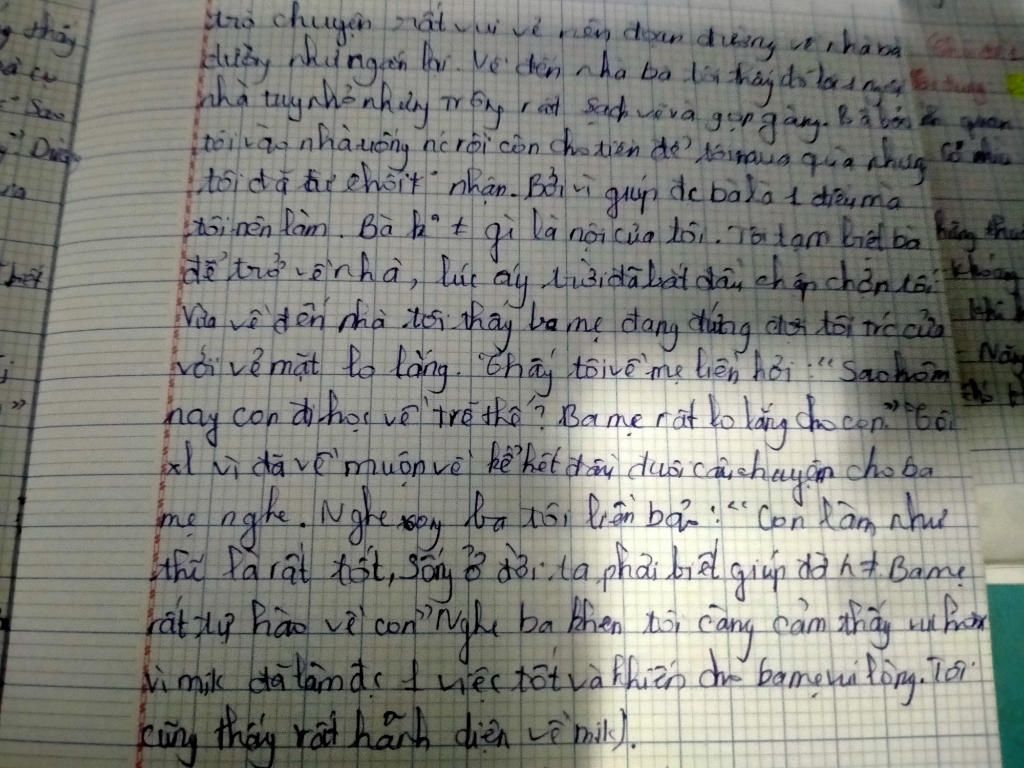 trò chuyện rất vui vẻ trên đoạn đường về nhà bà
dường như ngắn lại. Về đến nhà bà tôi thấy đó là 1 ngôi
nhà tuy nhỏ nhưng trông rất sạch sẽ và gọn gàng. Bà bảo
tôi vào nhà uống nc rồi còn cho tiền để tôi mua quà nhưng
tôi đã từ chối nhận. Bởi vì giúp đc bà là 1 điều mà
tôi nên làm. Bà k° ≠ gì là nội của tôi. Tôi tạm biệt bà
để trở về nhà, lúc ấy trời đã bắt đầu chập choạng tối
Vừa về đến nhà tôi thấy ba mẹ đang đứng đợi tôi trc cửa
với vẻ mặt lo lắng. Thấy tôi về mẹ liền hỏi: "Sao hôm
nay con đi học về trễ thế? Ba mẹ rất lo lắng cho con." Tôi
xl vì đã về muộn về kể hết đầu đuôi câu chuyện cho ba
mẹ nghe. Nghe xong ba tôi liền bảo: "Con làm như
thế là rất tốt, Sống ở đời ta phải biết giúp đỡ n ≠. Ba mẹ
rất tự hào về con" Nghe ba khen tôi càng cảm thấy vui hơn
vì mik đã làm đc 1 việc tốt và khiến cho ba mẹ vui lòng. Tôi
cũng thấy rất hãnh diện về mik).